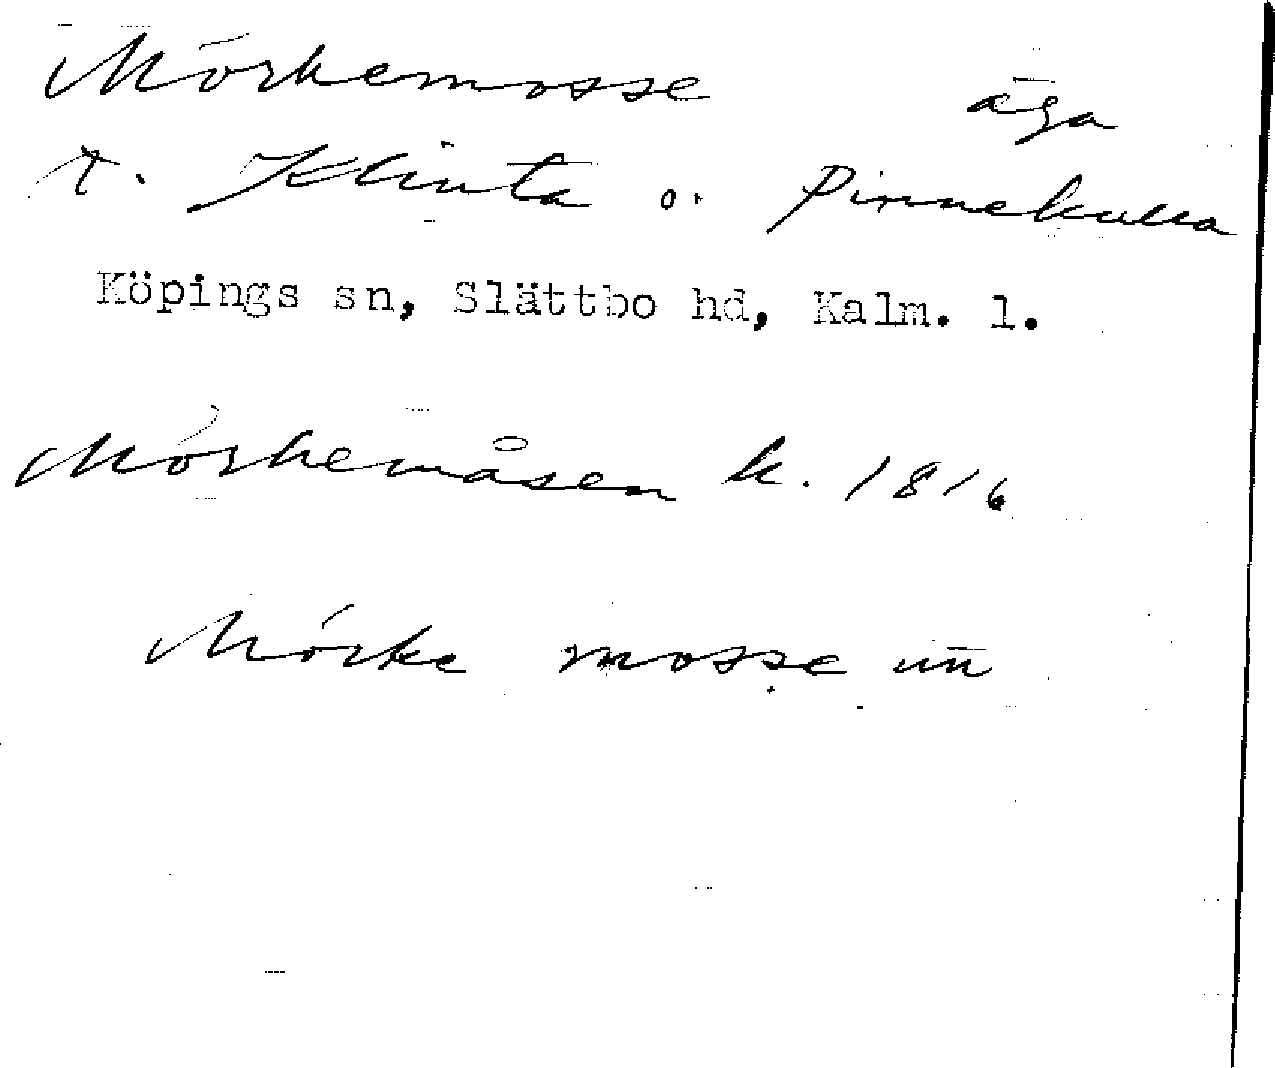 Mörkemosse äga
t. Klinta o. Pinnekulla
Köpings sn, Slättbo hd, Kalm. l.
Mörkemåsen k. 1816
Mörke mosse